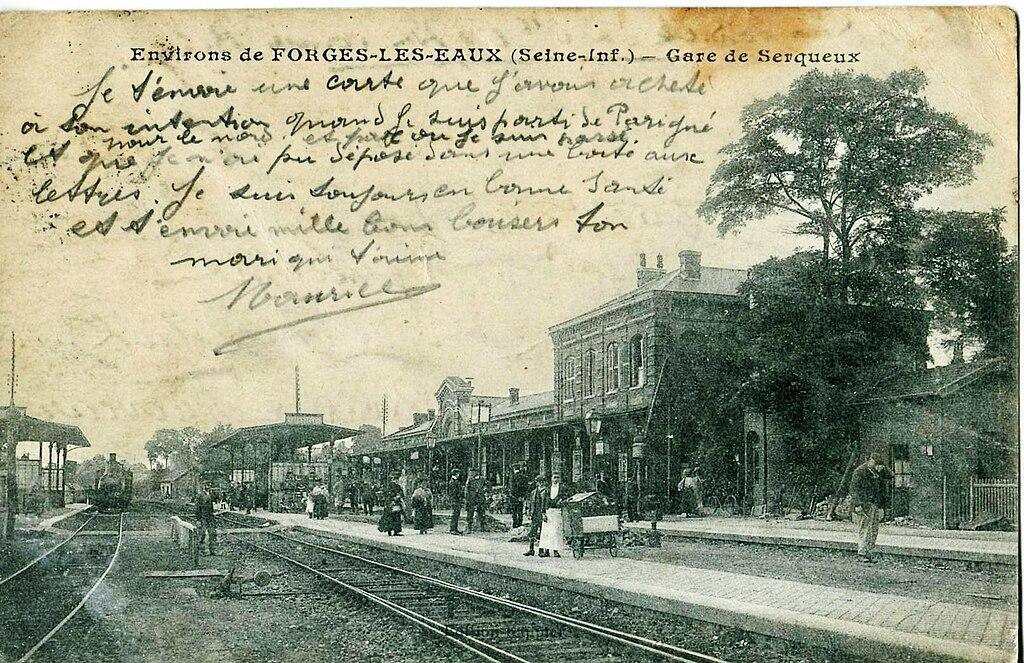 Environs de FORGES-LES-EAUX (Seine-Inf.) — Gare de Serqueux
Je t'envoie une carte que j'avais acheté
à ton intention quand je suis parti de Parigné
pour le nord et par ou je suis passé
et que je n'ai pu déposé dans une boite aux
lettres. Je suis toujours en bonne santé
et t'envoie mille bons baisers ton
mari qui t'aime
Maurice